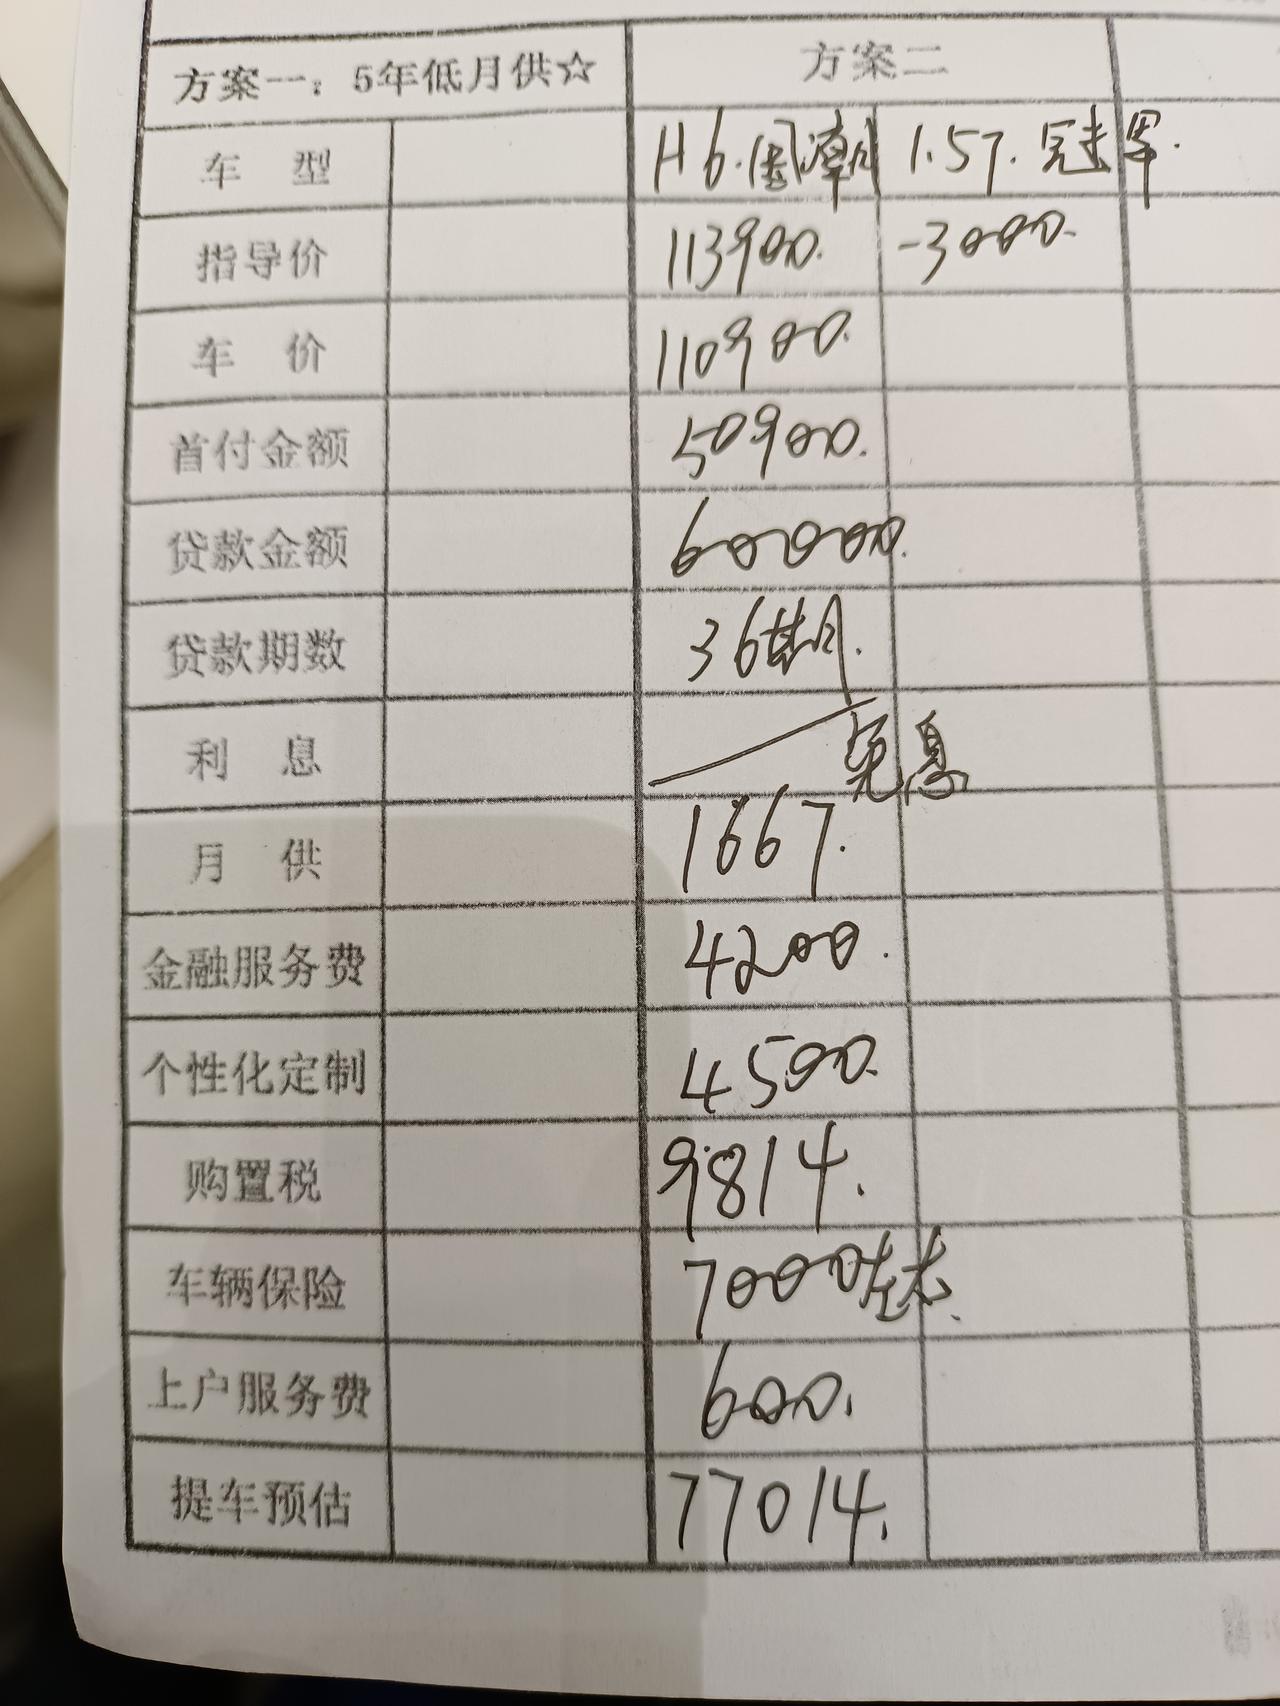 方案一：5年低月供☆ 方案二
车 型 H6.国潮 1.5T.冠军.
指导价 113900. -3000.
车 价 110900.
首付金额 50900.
贷款金额 60000.
贷款期数 36期.
利 息 免息
月 供 1667.
金融服务费 4200.
个性化定制 4500.
购置税 9814.
车辆保险 7000左右.
上户服务费 600.
提车预估 77014.